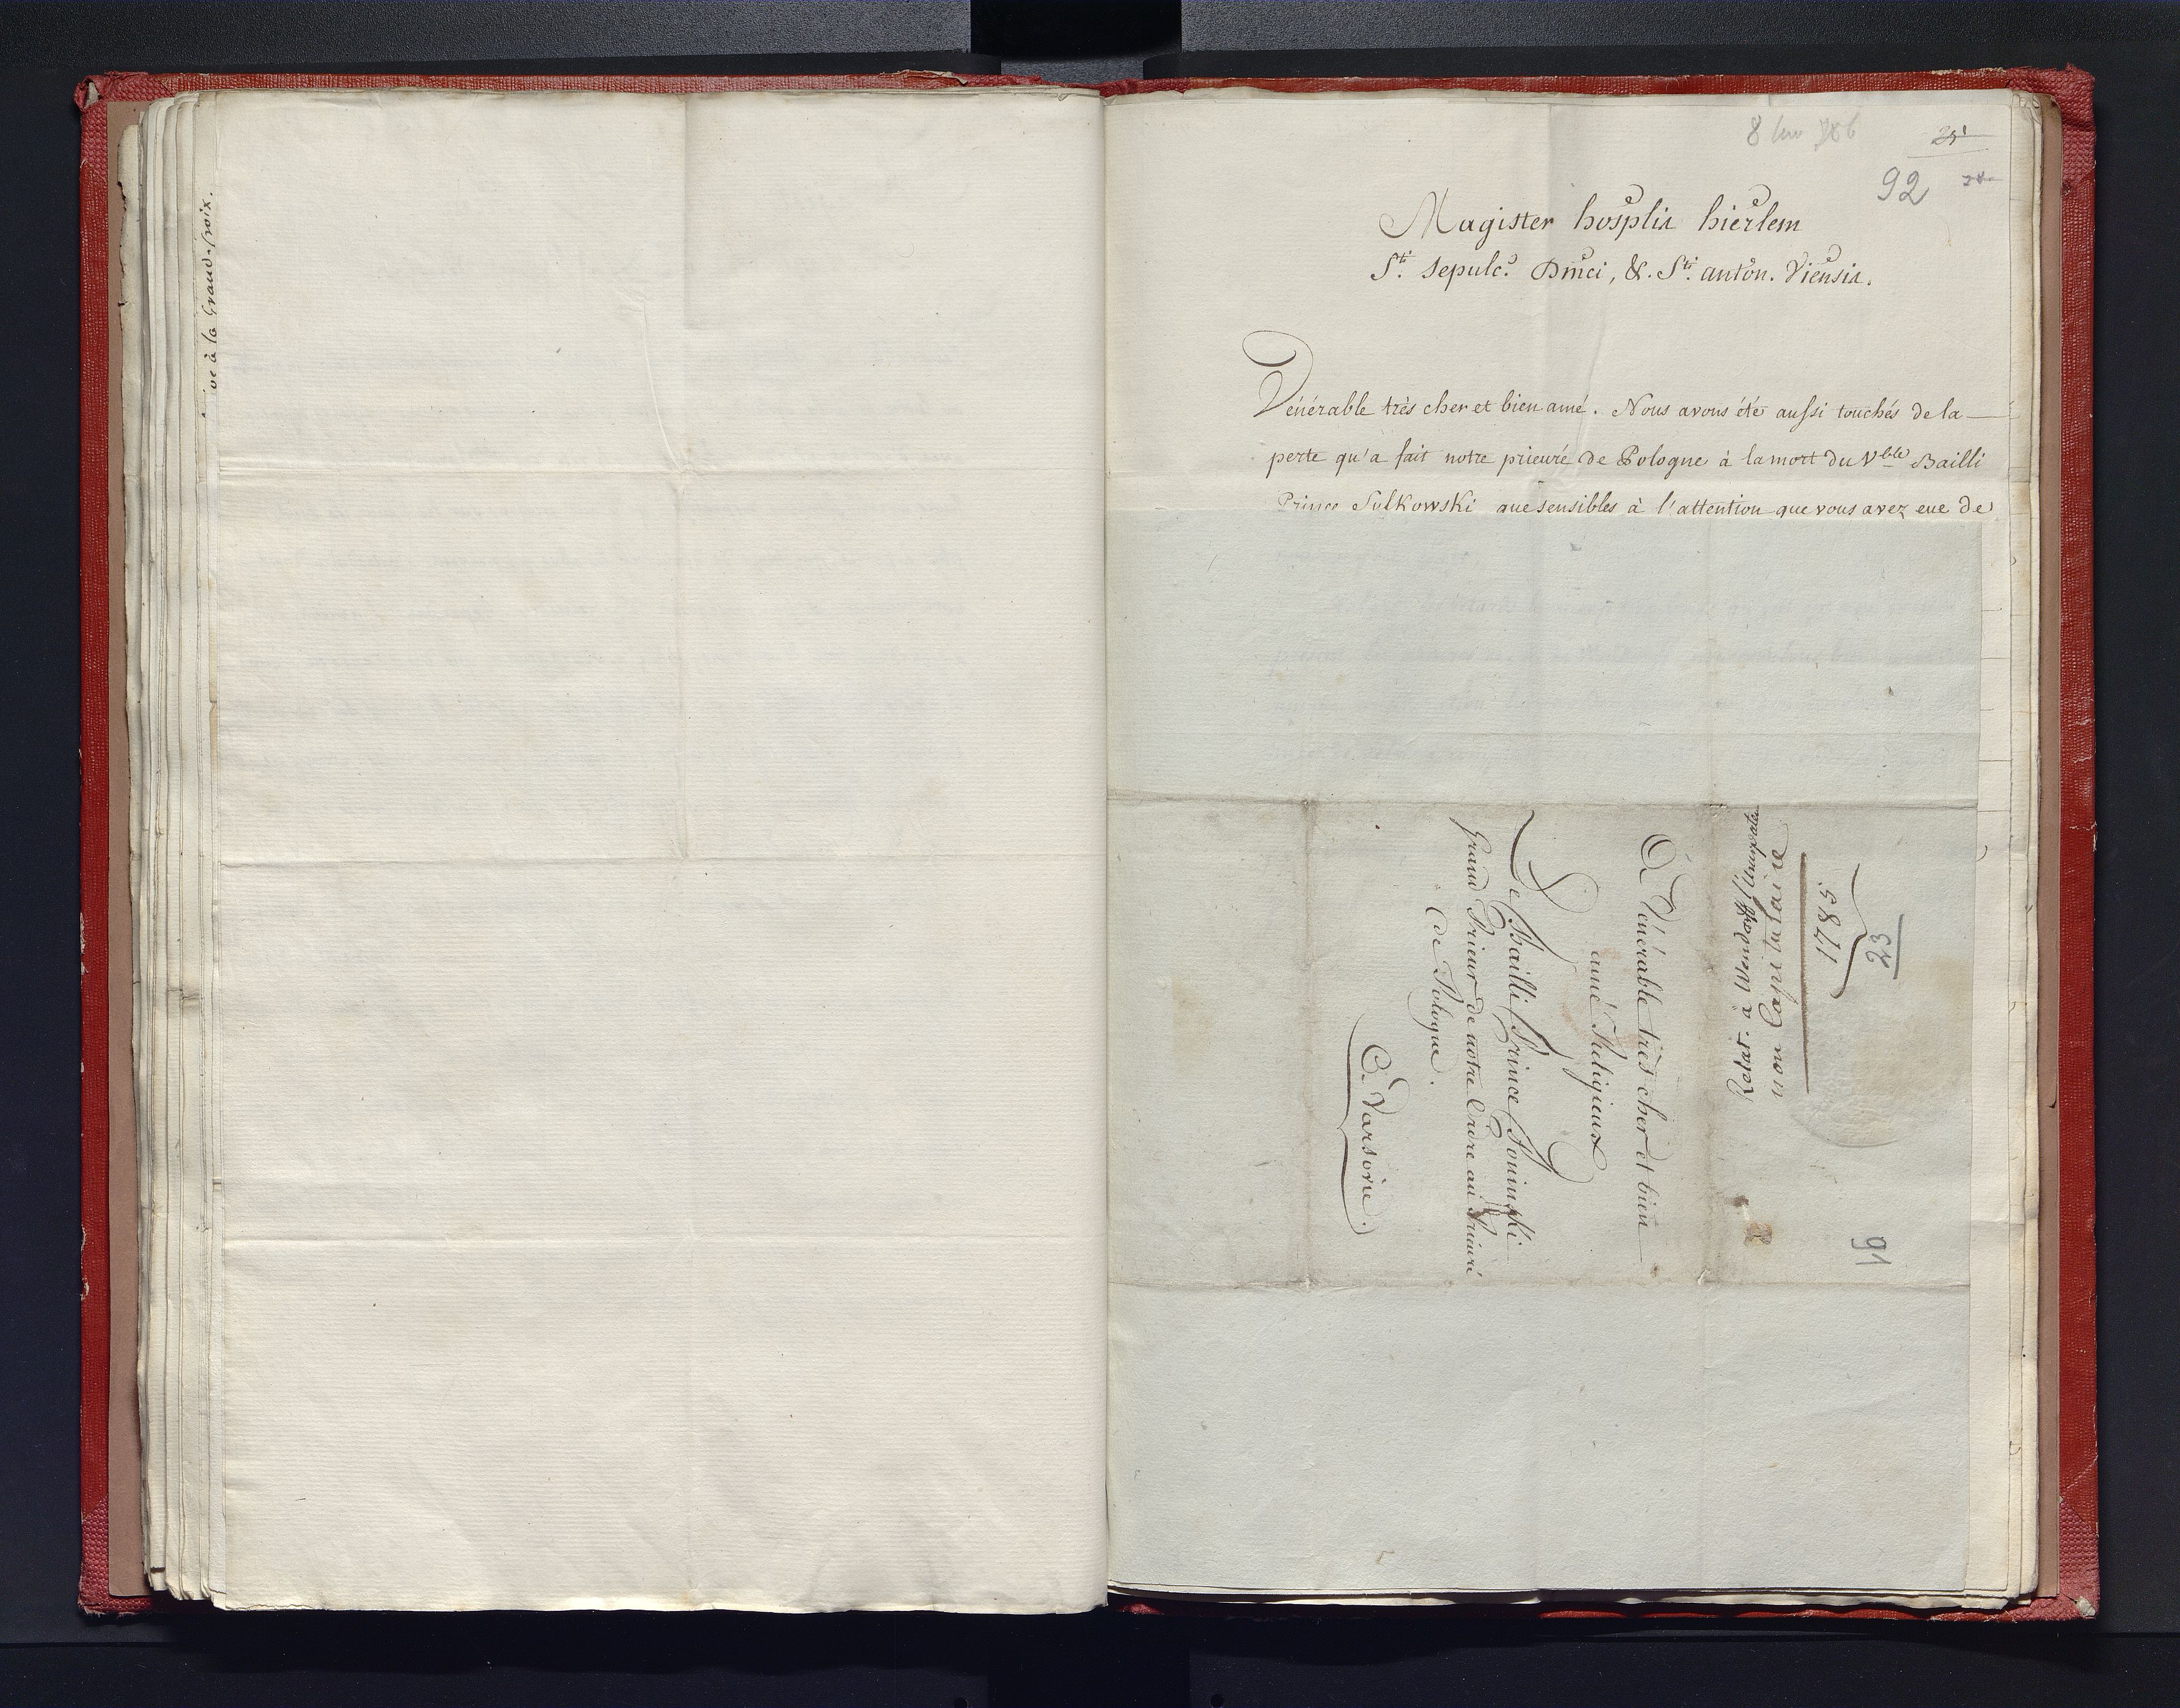 à la Grand-Croix.
8 86
25
92
Magister hosplis hierlem
Sti. Sepulc. Dmci, &. Sti. anton. Viensis.
Vénérable très cher et bien amé. Nous avons été aussi touchés de la
perte qu'a fait notre prieuré de Pologne à la mort du Vble Bailli
Prince Sulkowski que sensibles à l'attention que vous avez eue de
23
1785
non Capitulaire
Relat. à
A Vénérable très cher et bien
amé Religieux
Le Bailli Prince Poninski
Grand Prieur de notre Ordre au Prieuré
de Pologne.
à Varsovie.
91